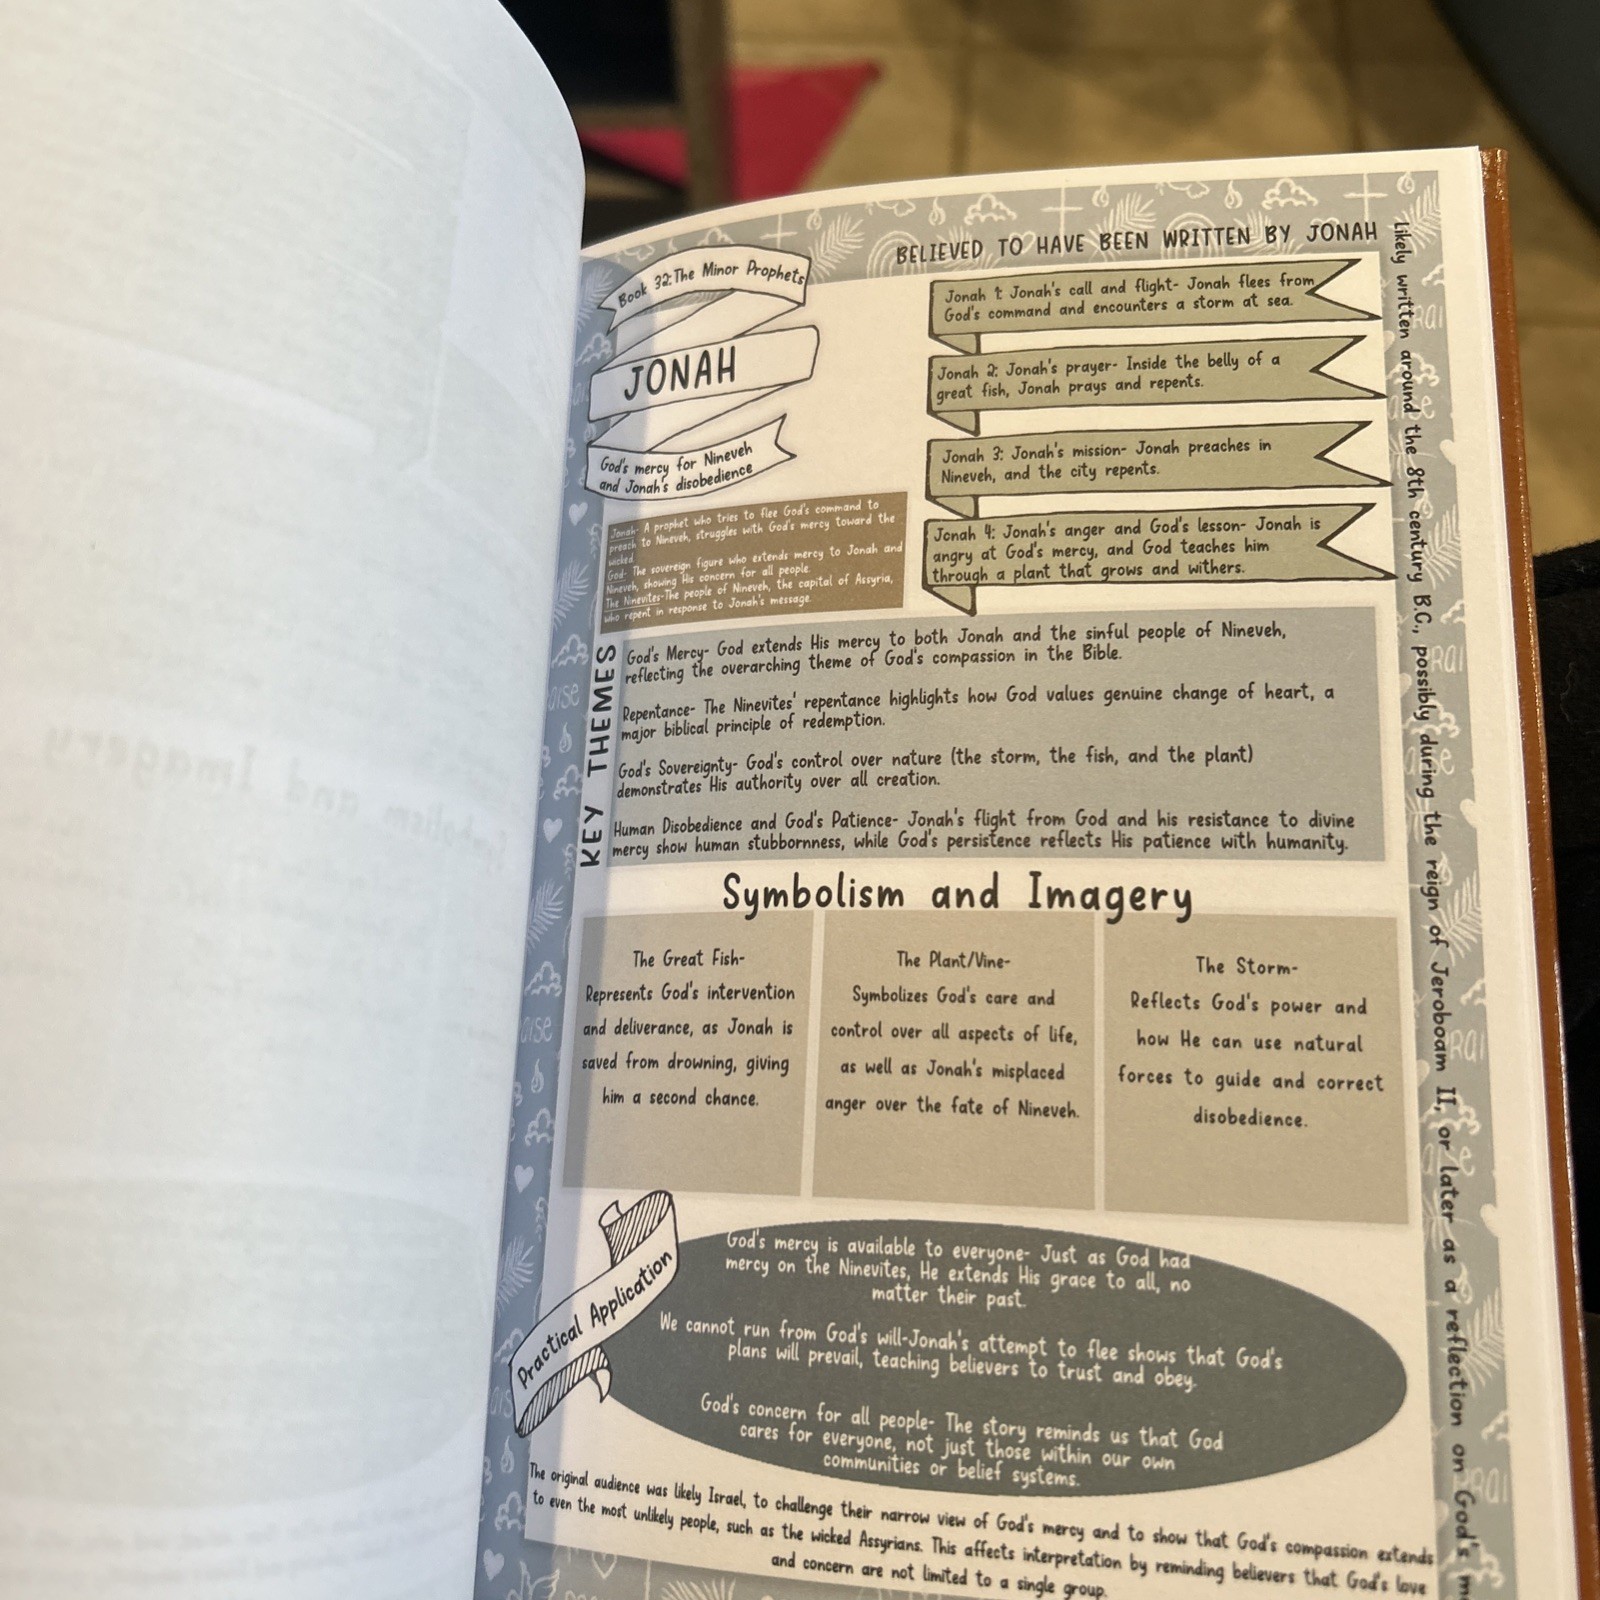 BELIEVED TO HAVE BEEN WRITTEN BY JONAH
Book 32: The Minor Prophets
JONAH
God's mercy for Nineveh
and Jonah's disobedience
Jonah 1: Jonah's call and flight- Jonah flees from
God's command and encounters a storm at sea.
Jonah 2: Jonah's prayer- Inside the belly of a
great fish, Jonah prays and repents.
Jonah 3: Jonah's mission- Jonah preaches in
Nineveh, and the city repents.
Jonah 4: Jonah's anger and God's lesson- Jonah is
angry at God's mercy, and God teaches him
through a plant that grows and withers.
Jonah- A prophet who tries to flee God's command to
preach to Nineveh, struggles with God's mercy toward the
wicked.
God- The sovereign figure who extends mercy to Jonah and
Nineveh, showing His concern for all people.
The Ninevites-The people of Nineveh, the capital of Assyria,
who repent in response to Jonah's message.
KEY THEMES
God's Mercy- God extends His mercy to both Jonah and the sinful people of Nineveh,
reflecting the overarching theme of God's compassion in the Bible.
Repentance- The Ninevites' repentance highlights how God values genuine change of heart, a
major biblical principle of redemption.
God's Sovereignty- God's control over nature (the storm, the fish, and the plant)
demonstrates His authority over all creation.
Human Disobedience and God's Patience- Jonah's flight from God and his resistance to divine
mercy show human stubbornness, while God's persistence reflects His patience with humanity.
Symbolism and Imagery
The Great Fish-
Represents God's intervention
and deliverance, as Jonah is
saved from drowning, giving
him a second chance.
The Plant/Vine-
Symbolizes God's care and
control over all aspects of life,
as well as Jonah's misplaced
anger over the fate of Nineveh.
The Storm-
Reflects God's power and
how He can use natural
forces to guide and correct
disobedience.
Practical Application
God's mercy is available to everyone- Just as God had
mercy on the Ninevites, He extends His grace to all, no
matter their past.
We cannot run from God's will-Jonah's attempt to flee shows that God's
plans will prevail, teaching believers to trust and obey.
God's concern for all people- The story reminds us that God
cares for everyone, not just those within our own
communities or belief systems.
The original audience was likely Israel, to challenge their narrow view of God's mercy and to show that God's compassion extends
to even the most unlikely people, such as the wicked Assyrians. This affects interpretation by reminding believers that God's love
and concern are not limited to a single group.
Likely written around the 8th century B.C., possibly during the reign of Jeroboam II, or later as a reflection on God's